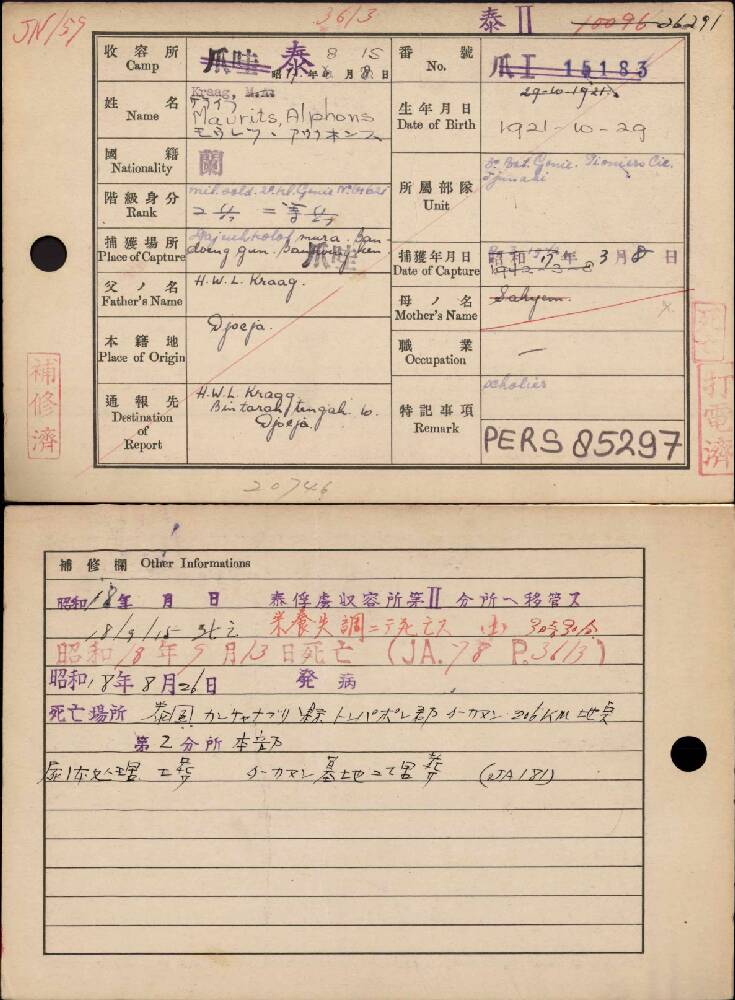 JN/59
3613
泰 II
10096 26291
収容所 Camp
爪哇 泰 8 15
昭 年 月 日
番號 No.
爪 I 15183
姓名 Name
Kraag, M.A.
Maurits, Alphons
生年月日 Date of Birth
29-10-1921
1921-10-29
國籍 Nationality
蘭
階級身分 Rank
所屬部隊 Unit
3e Bat. Genie. Pioniers Cie.
Tjimahi
捕獲場所 Place of Capture
爪哇
捕獲年月日 Date of Capture
昭和 17年 3月 8日
1942-3-8
父ノ名 Father's Name
H.W.L. Kraag.
母ノ名 Mother's Name
Sahyem.
本籍地 Place of Origin
Djocja.
職業 Occupation
—
通報先 Destination of Report
H.W.L. Kragg
Bintaran tengah 10.
Djocja.
特記事項 Remark
scholier
PERS 85297
補修濟
死亡
打電濟
20746
補修欄 Other Informations
昭和18年 月 日 泰俘虜収容所第II分所ヘ移管ス
18/9/15 死亡 栄養失調ニテ死亡ス
昭和18年9月13日死亡 (JA.78 P.3613)
昭和18年8月26日 発病
死亡場所 泰国カンチャナブリ県トンパポン郡 206KM地点
第2分所本部
屍体処理 土葬 基地ニ埋葬 (JA181)